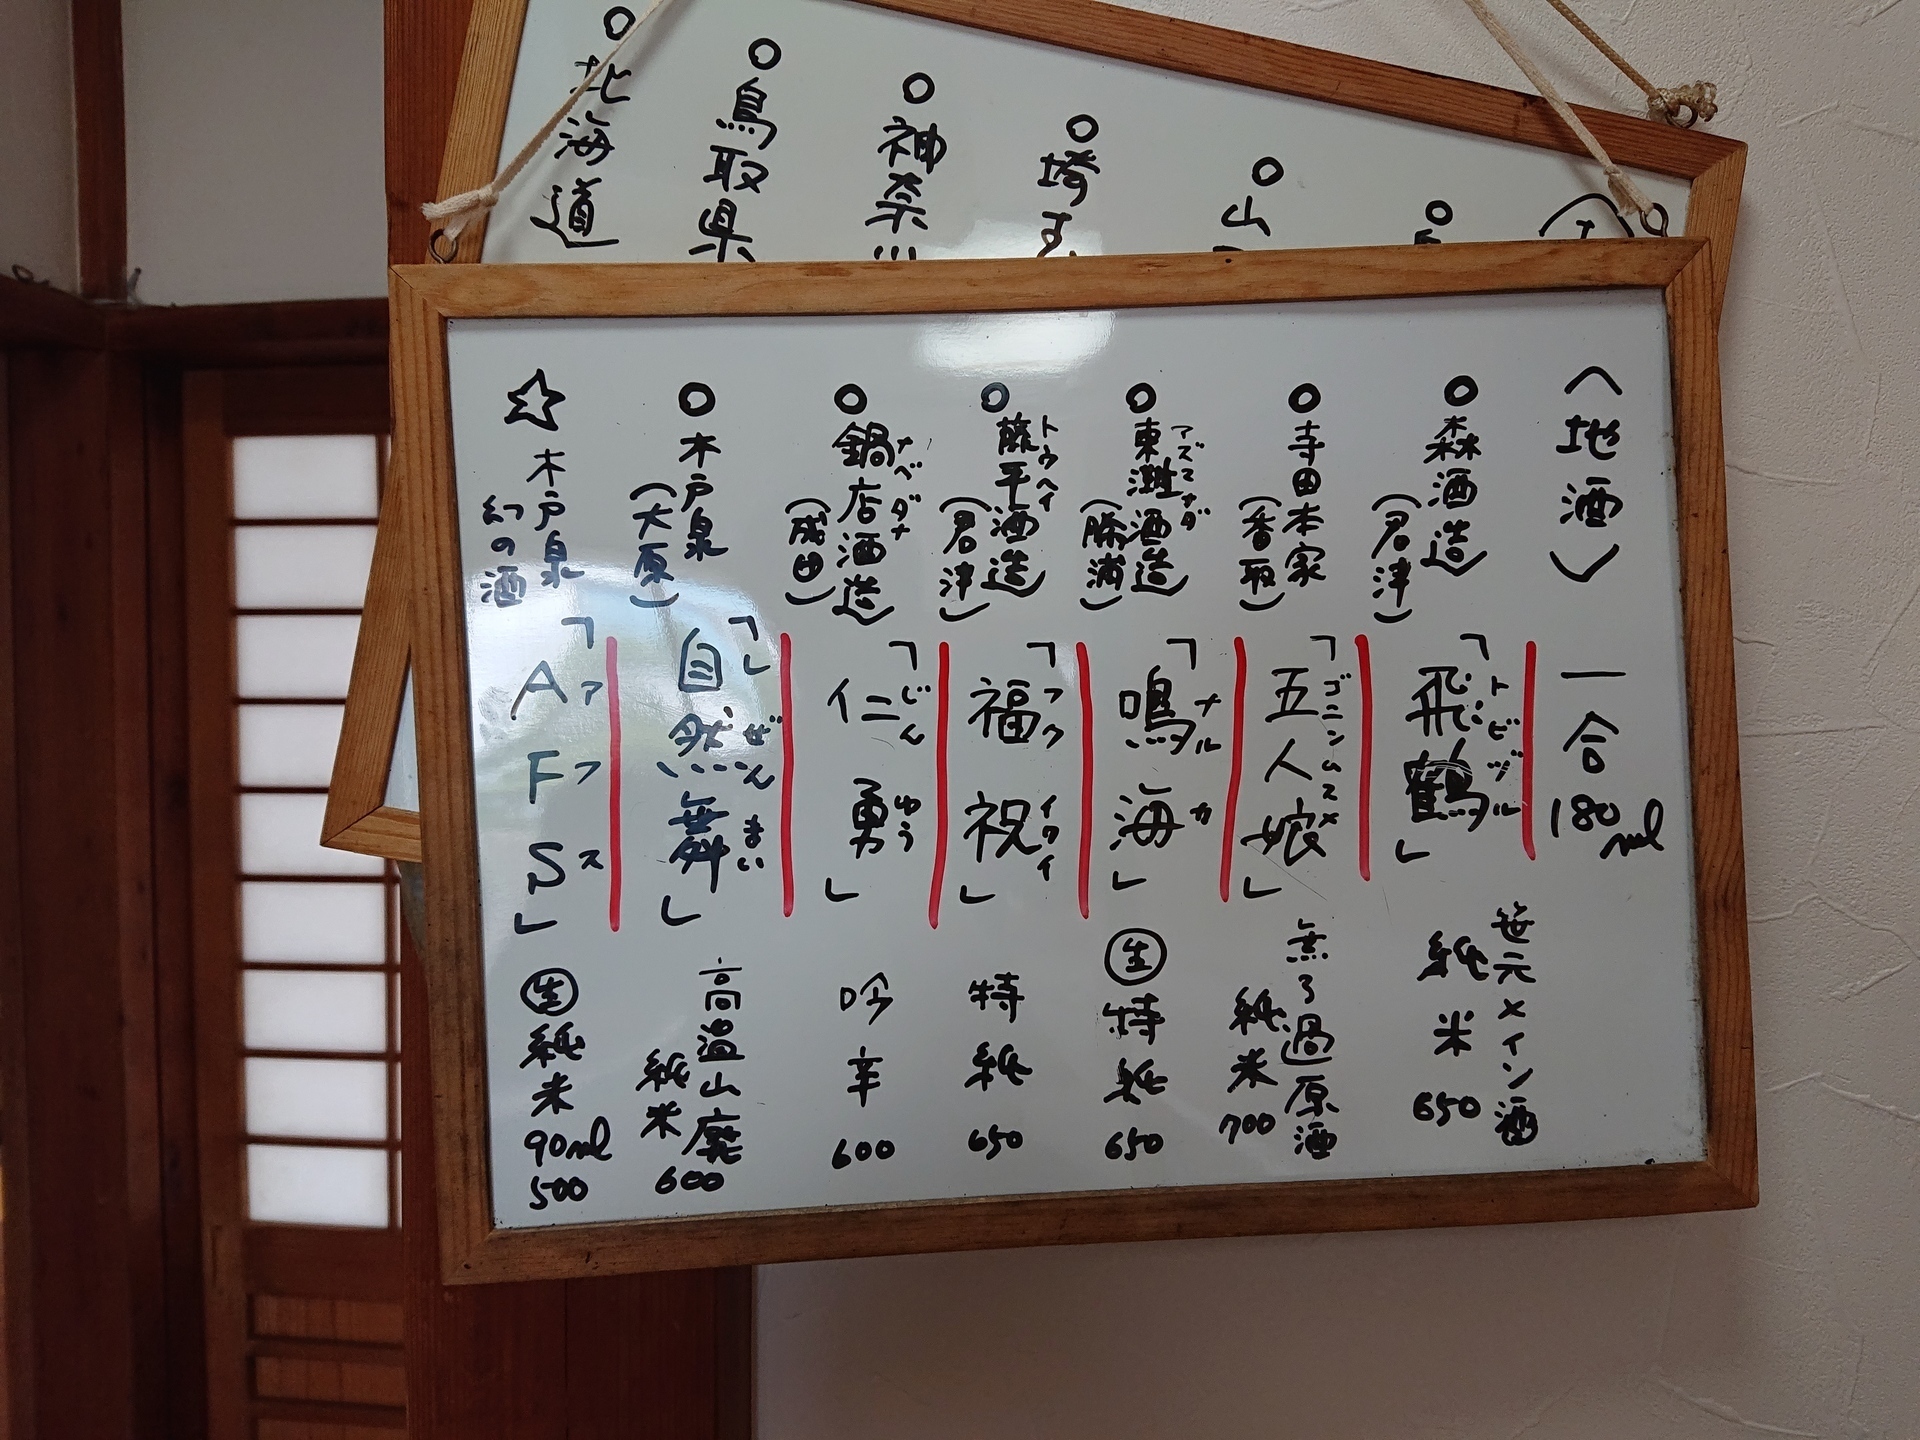 〈地酒〉
一合180ml
○森酒造
(君津)
「飛鶴」
トビヅル
笹元メイン酒
純米
650
○寺田本家
(香取)
「五人娘」
ゴニンムスメ
無ろ過原酒
純米
700
○東灘酒造
アズマナダ
(勝浦)
「鳴海」
ナルカ
生 特純
650
○藤平酒造
トウヘイ
(君津)
「福祝」
フクイワイ
特純
650
○鍋店酒造
ナベダナ
(成田)
「仁勇」
じんゆう
吟辛
600
○木戸泉
(大原)
「自然舞」
しぜんまい
高温山廃
純米
600
☆木戸泉
幻の酒
「AFS」
アフス
生 純米
90ml
500
○山
○埼
○神奈川
○鳥取県
○北海道